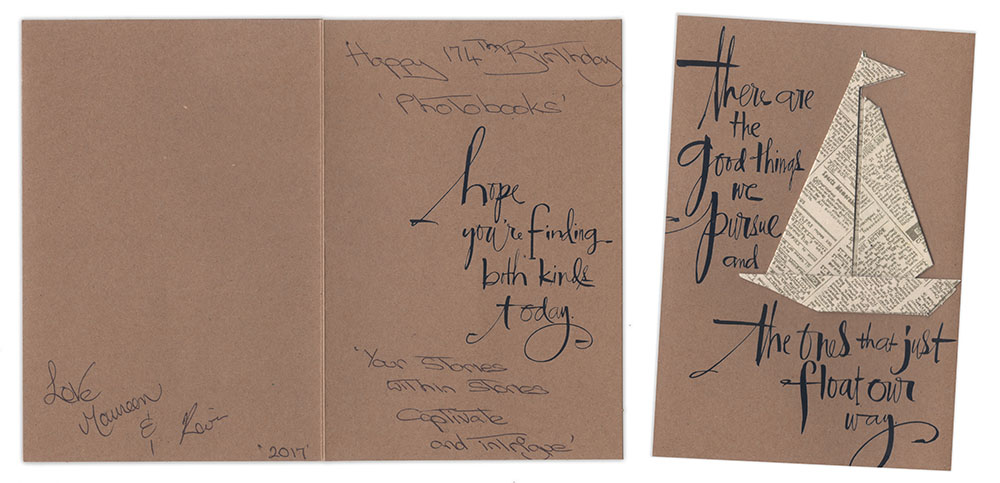 Happy 174th Birthday
'Photobooks'
hope
you're finding
both kinds
today.
'Your Stories
within Stories
Captivate
and intrigue'
Love
Maureen
&
Kevin
'2017'
there are
the
good things
we
pursue
and
the ones that just
float our
way